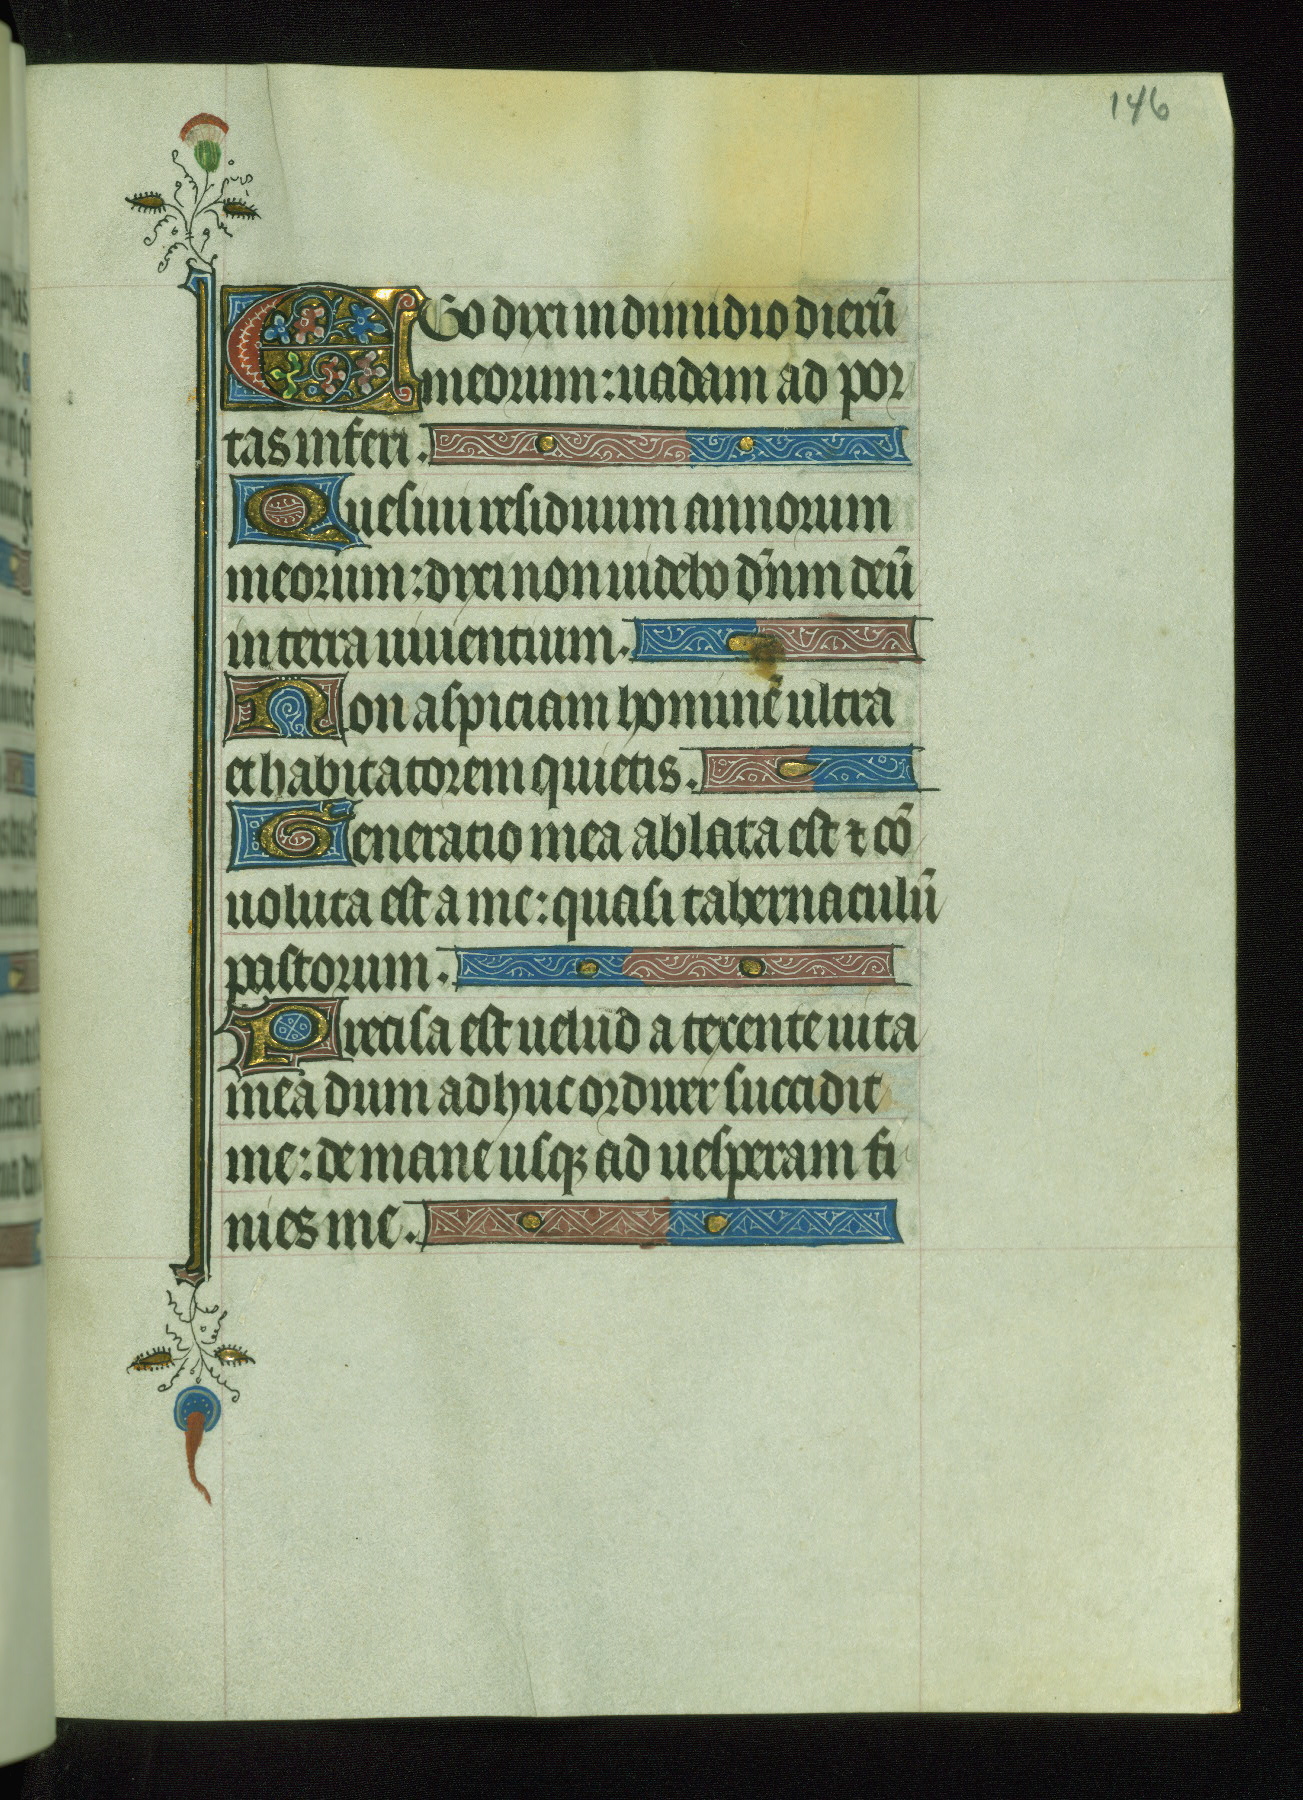 146
Ego dixi in dimidio dierū
meorum: uadam ad por
tas inferi.
Quesiui residuum annorum
meorum: dixi non uidebo dn̄m deū
in terra uiuentium.
Non aspiciam hominē ultra
et habitatorem quietis.
Generatio mea ablata est ⁊ cō
uoluta est a me: quasi tabernaculū
pastorum.
Precisa est uelud a texente uita
mea dum adhuc ordirer succidit
me: de mane usqꝫ ad uesperam fi
nies me.